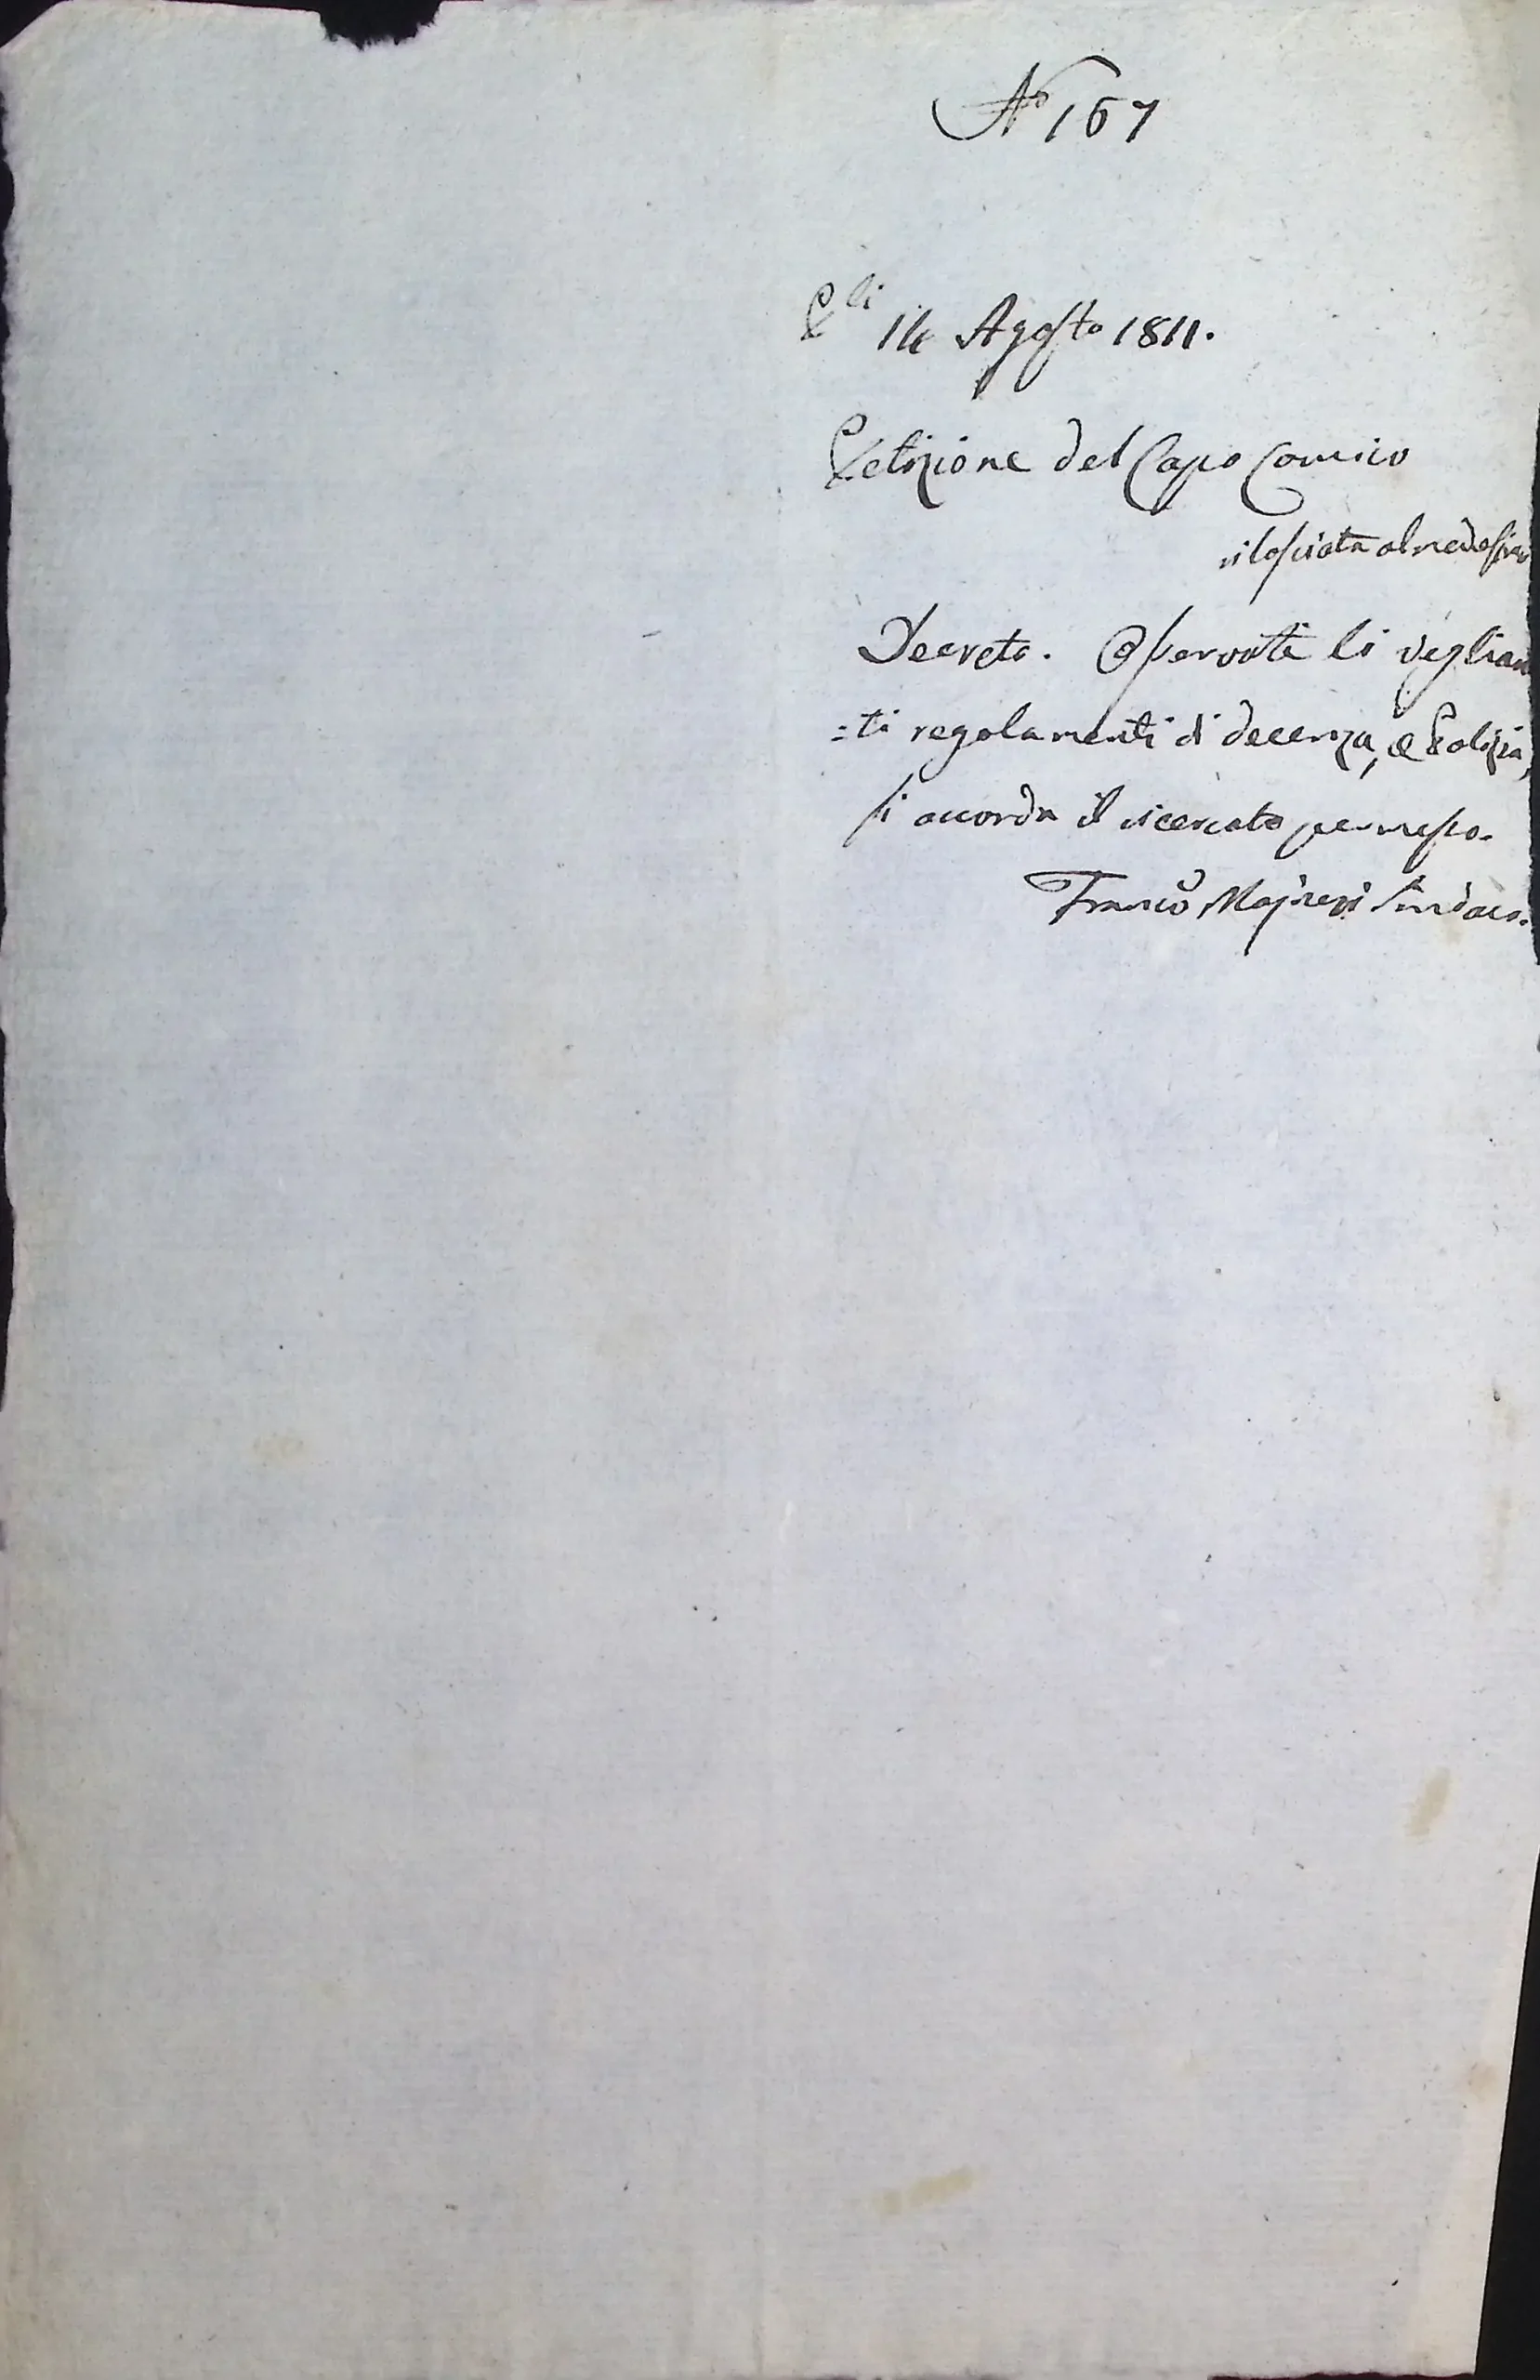 N° 167
P li 14 Agosto 1811.
Petizione del Capo Comico
rilasciata al medesimo
Decreto. Osservati li veglian
=ti regolamenti di decenza, e Polizia,
si accorda il ricercato permesso.
Franc.o Sindaco.